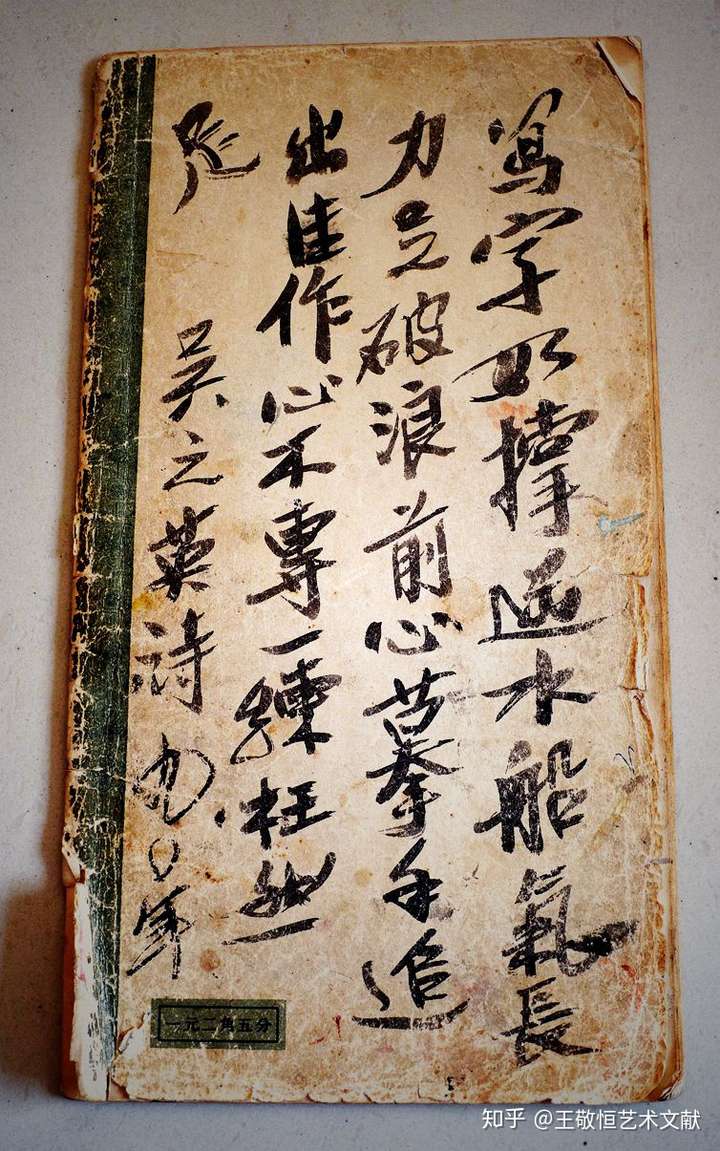 寫字如撑逆水船氣長
力足破浪前心摹手追
出佳作心不專一練枉然
吴之英詩 九〇年
一元二角五分
知乎 @王敬恒艺术文献